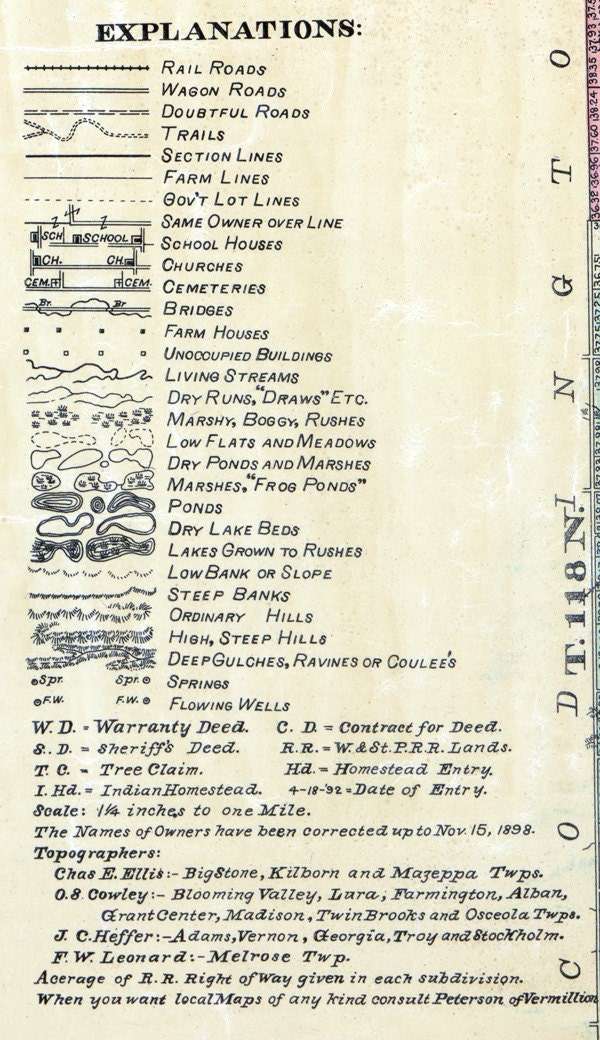 EXPLANATIONS:
RAIL ROADS
WAGON ROADS
DOUBTFUL ROADS
TRAILS
SECTION LINES
FARM LINES
GOV'T LOT LINES
Z Z SAME OWNER OVER LINE
SCH SCHOOL SCHOOL HOUSES
CH. CH. CHURCHES
CEM. CEM. CEMETERIES
Br. Br. BRIDGES
FARM HOUSES
UNOCCUPIED BUILDINGS
LIVING STREAMS
DRY RUNS, "DRAWS" ETC.
MARSHY, BOGGY, RUSHES
LOW FLATS AND MEADOWS
DRY PONDS AND MARSHES
MARSHES, "FROG PONDS"
PONDS
DRY LAKE BEDS
LAKES GROWN TO RUSHES
LOW BANK OR SLOPE
STEEP BANKS
ORDINARY HILLS
HIGH, STEEP HILLS
DEEP GULCHES, RAVINES OR COULEE'S
Spr. Spr. SPRINGS
F.W. F.W. FLOWING WELLS
W. D. = Warranty Deed. C. D. = Contract for Deed.
S. D. = Sheriff's Deed. R.R. = W. & St. P. R. R. Lands.
T. C. = Tree Claim. Hd. = Homestead Entry.
I. Hd. = Indian Homestead. 4-18-'92 = Date of Entry.
Scale: 1¼ inches to one Mile.
The Names of Owners have been corrected up to Nov. 15, 1898.
Topographers:
Chas E. Ellis:- Big Stone, Kilborn and Mazeppa Twps.
O.S. Cowley:- Blooming Valley, Lura, Farmington, Alban,
Grant Center, Madison, Twin Brooks and Osceola Twps.
J. C. Heffer:- Adams, Vernon, Georgia, Troy and Stockholm.
F. W. Leonard:- Melrose Twp.
Acerage of R. R. Right of Way given in each subdivision.
When you want local Maps of any kind consult Peterson of Vermillion
C O D I N G T O
T. 118 N.